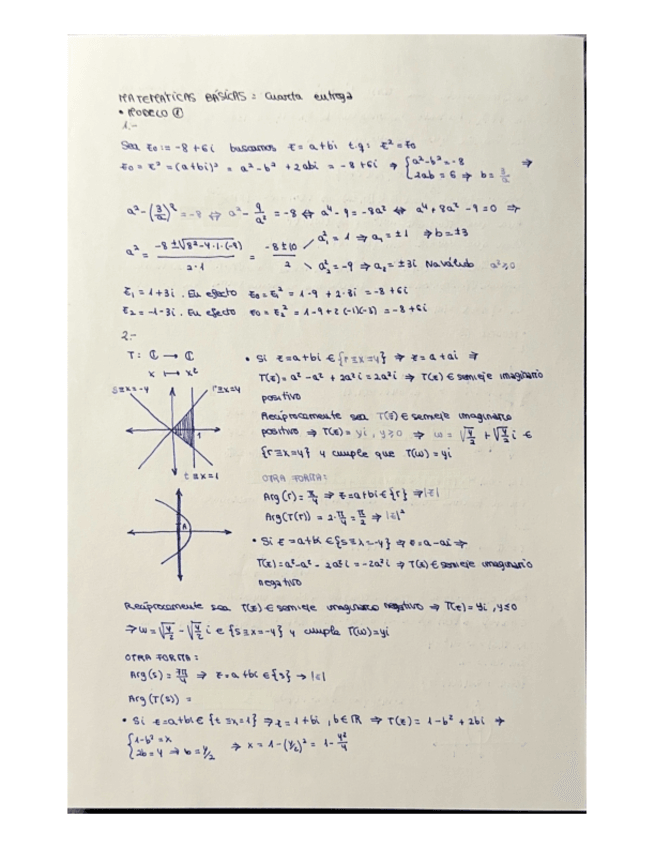 MATEMÁTICAS BÁSICAS: Cuarta entrega
• MODELO ①
1.-
Sea z₀ := -8+6i buscamos z = a+bi t.q: z² = z₀
z₀ = z² = (a+bi)² = a²-b² + 2abi = -8+6i ⇒ { a²-b² = -8 ⇒
2ab = 6 ⇒ b = 3/a
a² - (3/a)² = -8 ⇔ a² - 9/a² = -8 ⇔ a⁴ - 9 = -8a² ⇔ a⁴ + 8a² - 9 = 0 ⇒
a² = (-8 ± √(8²-4·1·(-9)))/(2·1) = (-8±10)/2
a₁² = 1 ⇒ a₁ = ±1 ⇒ b = ±3
a₂² = -9 ⇒ a₂ = ±3i No válido a² ≥ 0
z₁ = 1+3i. En efecto z₀ = z₁² = 1-9 + 2·3i = -8+6i
z₂ = -1-3i. En efecto z₀ = z₂² = 1-9+2(-1)(-3) = -8+6i
2.-
T: ℂ → ℂ
x ↦ x²
s≡x=-y r≡x=y
1
t≡x=1
A
• Si z = a+bi ∈ {r≡x=y} ⇒ z = a+ai ⇒
T(z) = a²-a² + 2a²i = 2a²i ⇒ T(z) ∈ semieje imaginario
positivo
Recíprocamente sea T(z) ∈ semieje imaginario
positivo ⇒ T(z) = yi, y≥0 ⇒ w = √(y/2) + √(y/2) i ∈
{r≡x=y} y cumple que T(w) = yi
OTRA FORMA:
Arg(r) = π/4 ⇒ z = a+bi ∈ {r} ⇒ |z|
Arg(T(r)) = 2·π/4 = π/2 ⇒ |z|²
• Si z = a+bi ∈ {s≡x=-y} ⇒ z = a-ai ⇒
T(z) = a²-a² - 2a²i = -2a²i ⇒ T(z) ∈ semieje imaginario
negativo
Recíprocamente sea T(z) ∈ semieje imaginario negativo ⇒ T(z) = yi, y≤0
⇒ w = √(y/2) - √(y/2) i ∈ {s≡x=-y} y cumple T(w) = yi
OTRA FORMA:
Arg(s) = 7π/4 ⇒ z = a+bi ∈ {s} → |z|
Arg(T(s)) =
• Si z = a+bi ∈ {t≡x=1} ⇒ z = 1+bi, b∈ℝ ⇒ T(z) = 1-b² + 2bi ⇒
{ 1-b² = x
2b = y ⇒ b = y/2 ⇒ x = 1-(y/2)² = 1 - y²/4